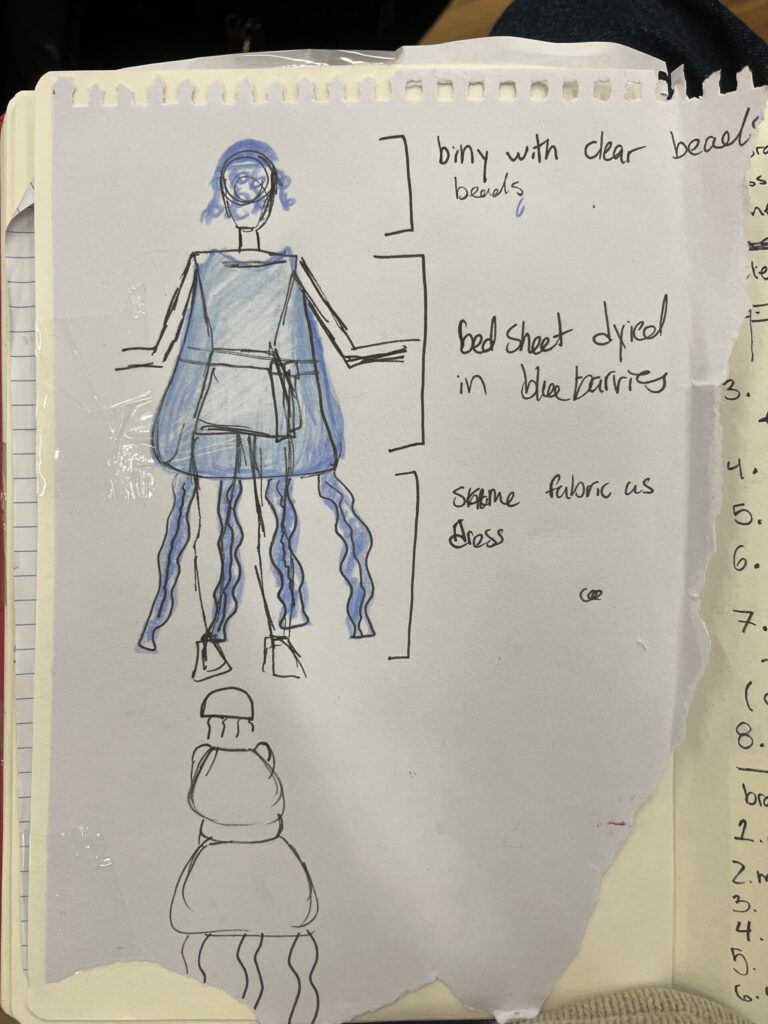 biny with clear beads
beads
bed sheet dyied
in bluebarries
same fabric as
dress
3.
4.
5.
6.
7.
(
8.
bra
1.
2.
3.
4.
5.
6.